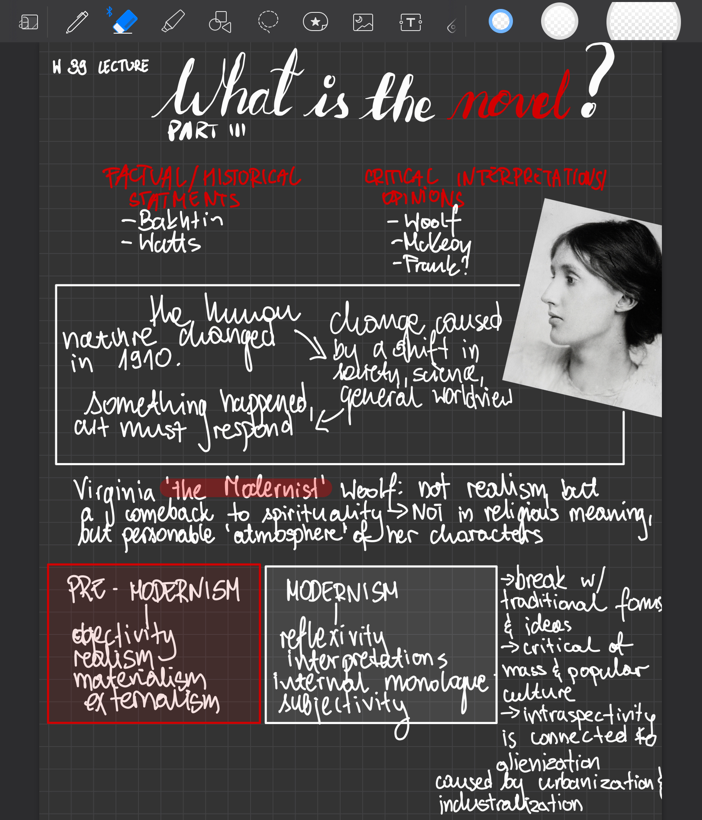 W 39 LECTURE
What is the novel?
PART III
FACTUAL/HISTORICAL
STATMENTS
- Bakhtin
- Watts
CRITICAL INTERPRETATIONS/
OPINIONS
- Woolf
- McKeoy
- Frank?
the human
nature changed
in 1910.
change caused
by a shift in
society, science,
general worldview
something happened,
art must respond
Virginia 'the Modernist' Woolf: not realism but
a comeback to spirituality → NOT in religious meaning,
but personable 'atmosphere' of her characters
PRE - MODERNISM
objectivity
realism
materialism
externalism
MODERNISM
reflexivity
interpretations
internal monologue
subjectivity
→ break w/
traditional forms
& ideas
→ critical of
mass & popular
culture
→ intraspectivity
is connected to
alienization
caused by urbanization &
industralization